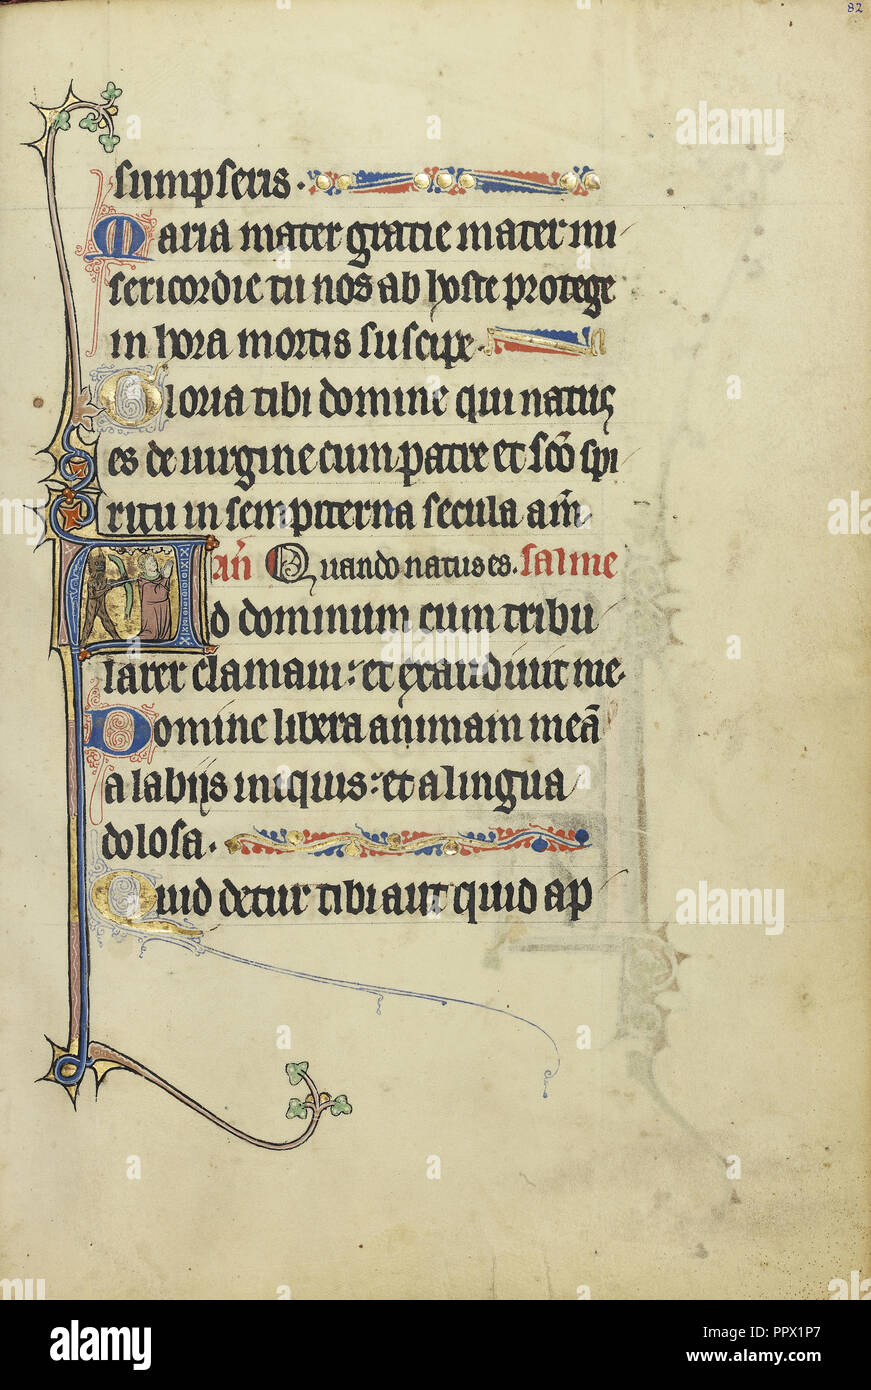 82
sumpseris.
Maria mater gratie mater mi
sericordie tu nos ab hoste protege
in hora mortis suscipe.
Gloria tibi domine qui natus
es de uirgine cum patre et sc̄o spi
ritu in sempiterna secula am̄
an̄ Quando natus es. salme
Ad dominum cum tribu
larer clamaui: et exaudiuit me.
Domine libera animam meā
a labijs iniquis: et a lingua
dolosa.
Quid detur tibi aut quid ap
alamy
alamy stock photo
PPX1P7
www.alamy.com